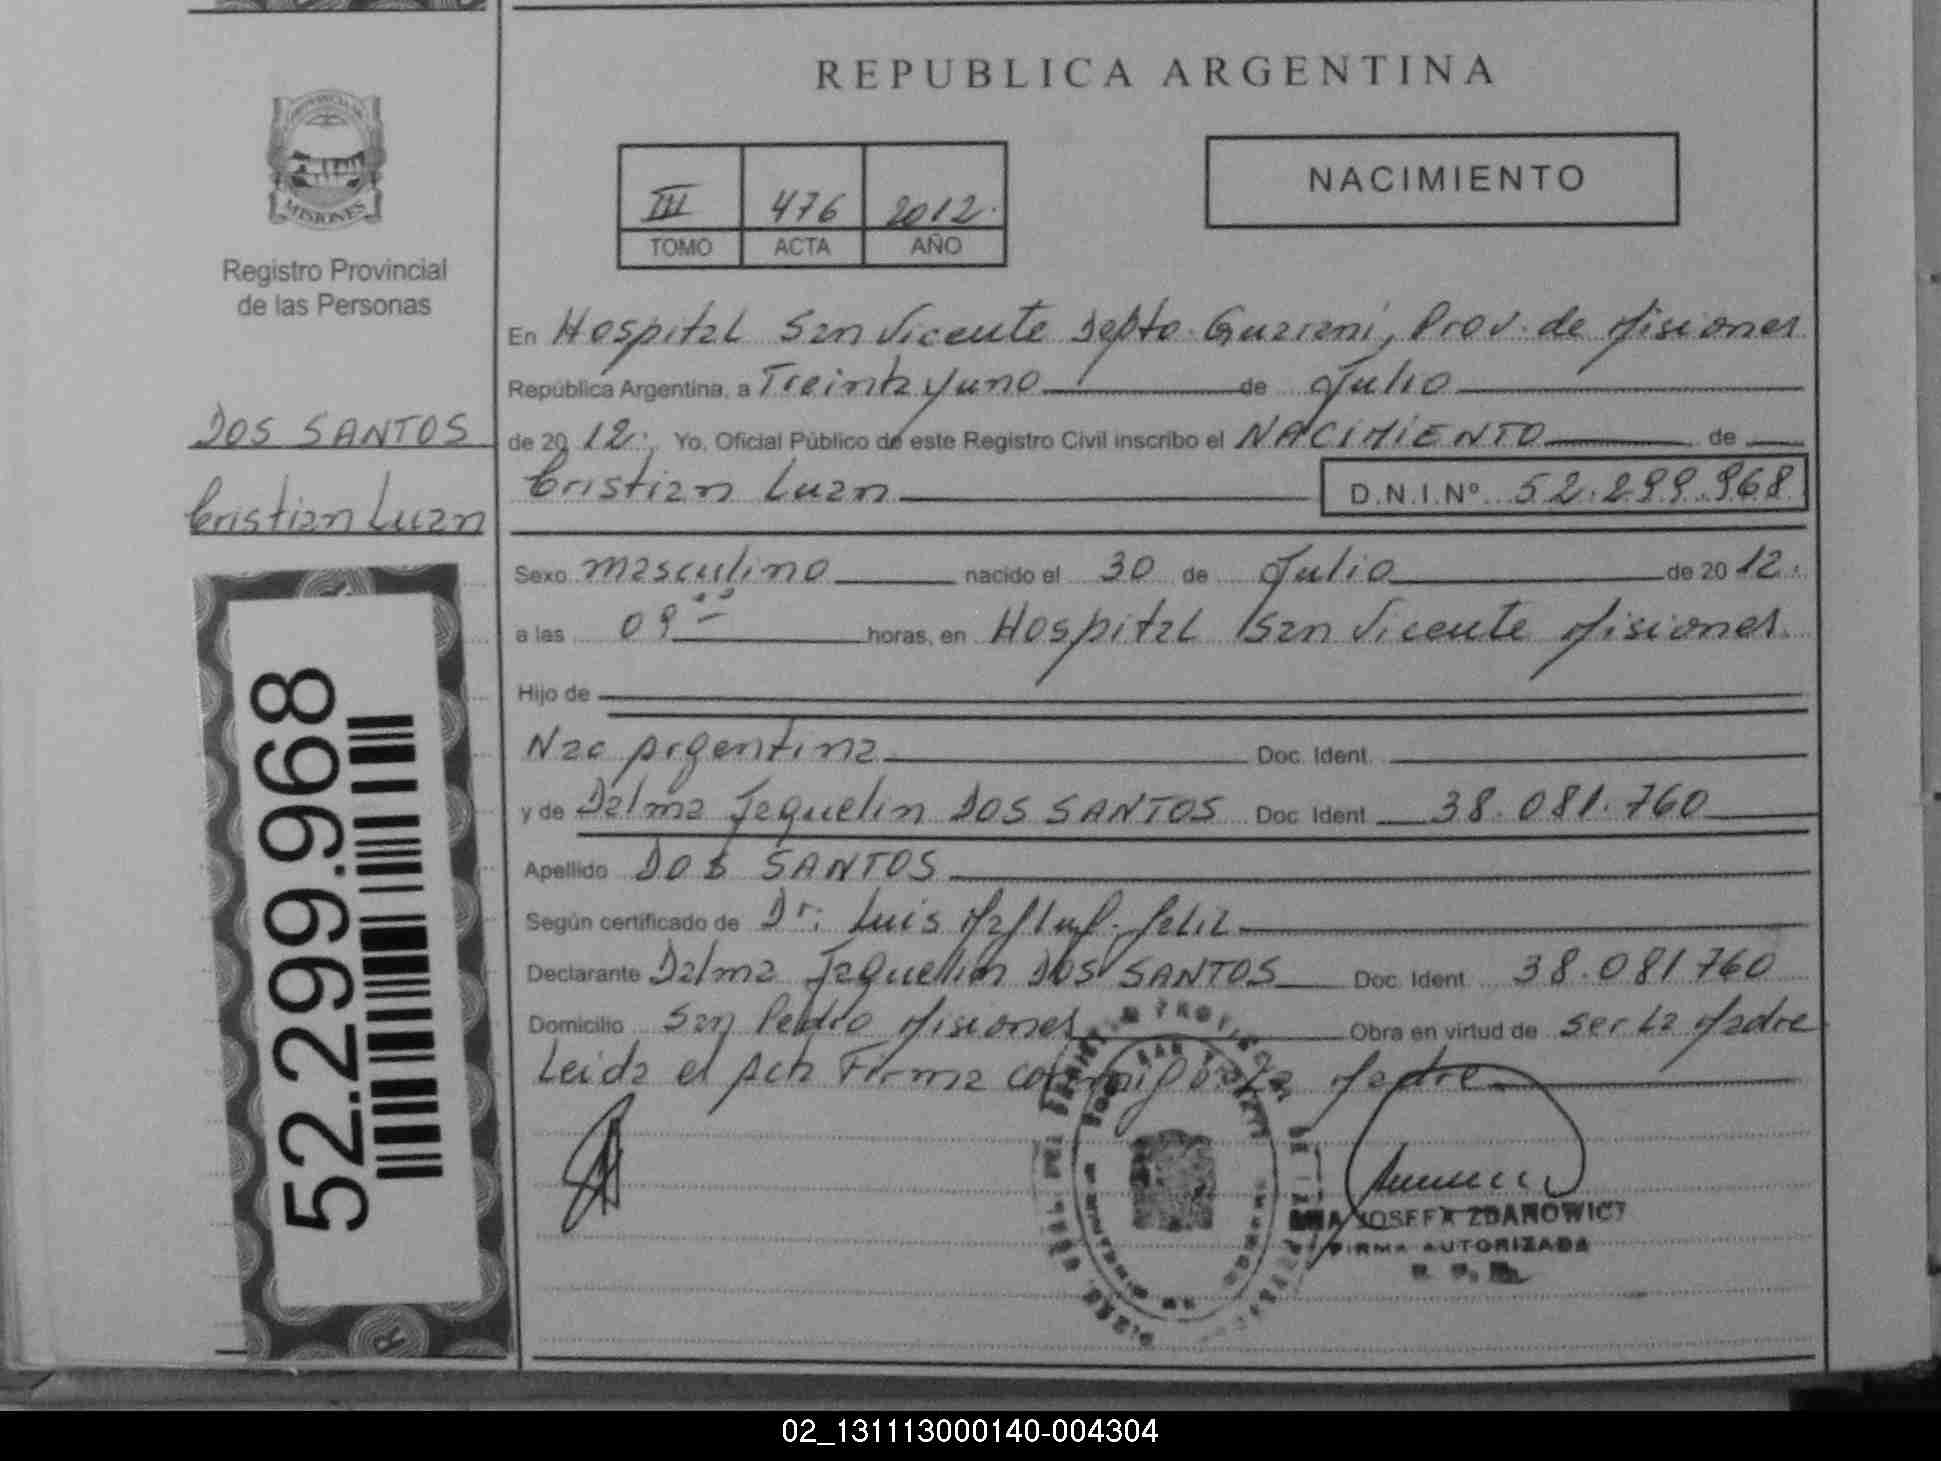 REPUBLICA ARGENTINA
NACIMIENTO
III 476 2012.
TOMO ACTA AÑO
MISIONES
Registro Provincial
de las Personas
DOS SANTOS
Cristian Luan
52.299.968
En Hospital San Vicente Depto. Guarani, Prov. de Misiones
República Argentina, a Treinta y uno de Julio
de 20 12. Yo, Oficial Público de este Registro Civil inscribo el NACIMIENTO de
Cristian Luan D.N.I.Nº 52.299.968
Sexo masculino nacido el 30 de Julio de 20 12.
a las 09 horas, en Hospital San Vicente Misiones.
Hijo de
Nac Argentina Doc. Ident.
y de Dalma Jaquelin DOS SANTOS Doc. Ident 38.081.760
Apellido DOS SANTOS
Según certificado de Dr. Luis
Declarante Dalma Jaquelin DOS SANTOS Doc. Ident 38.081760
Domicilio San Pedro Misiones Obra en virtud de ser La Madre
Leida el Acta Firma La Madre
JOSEFA ZDANOWICZ
FIRMA AUTORIZADA
02_131113000140-004304